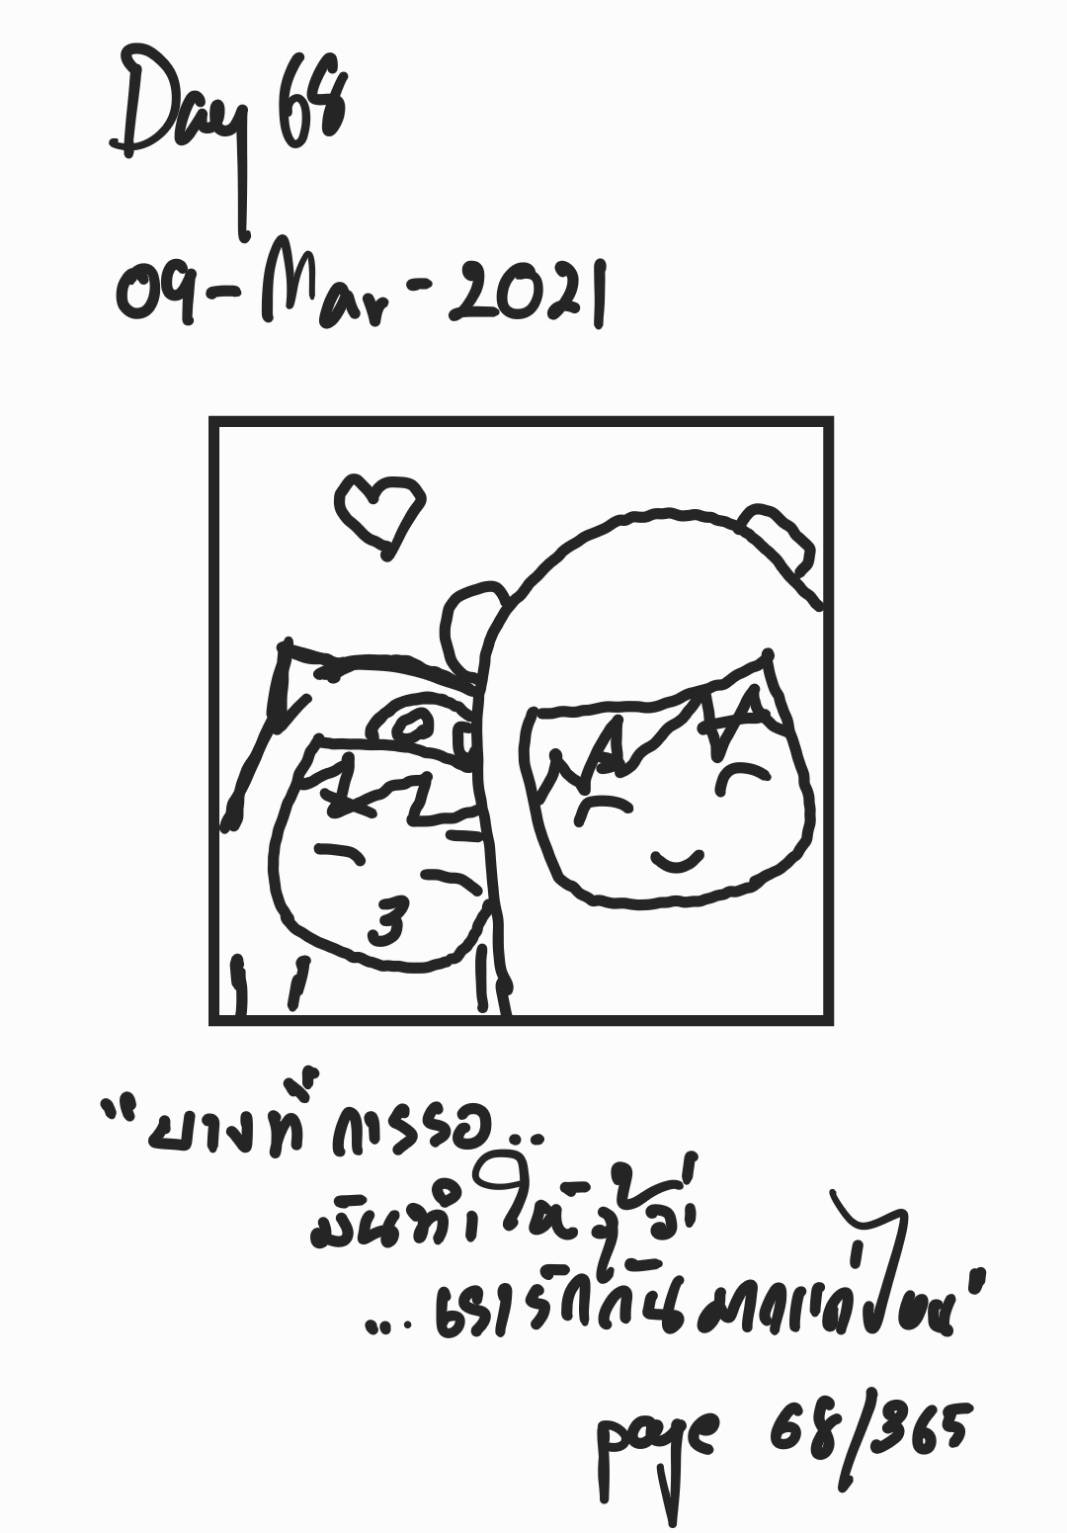 Day 68
09-Mar-2021
"บางที การรอ..
มันทำให้รู้ว่า
... เรารักกันมากแค่ไหน"
page 68/365